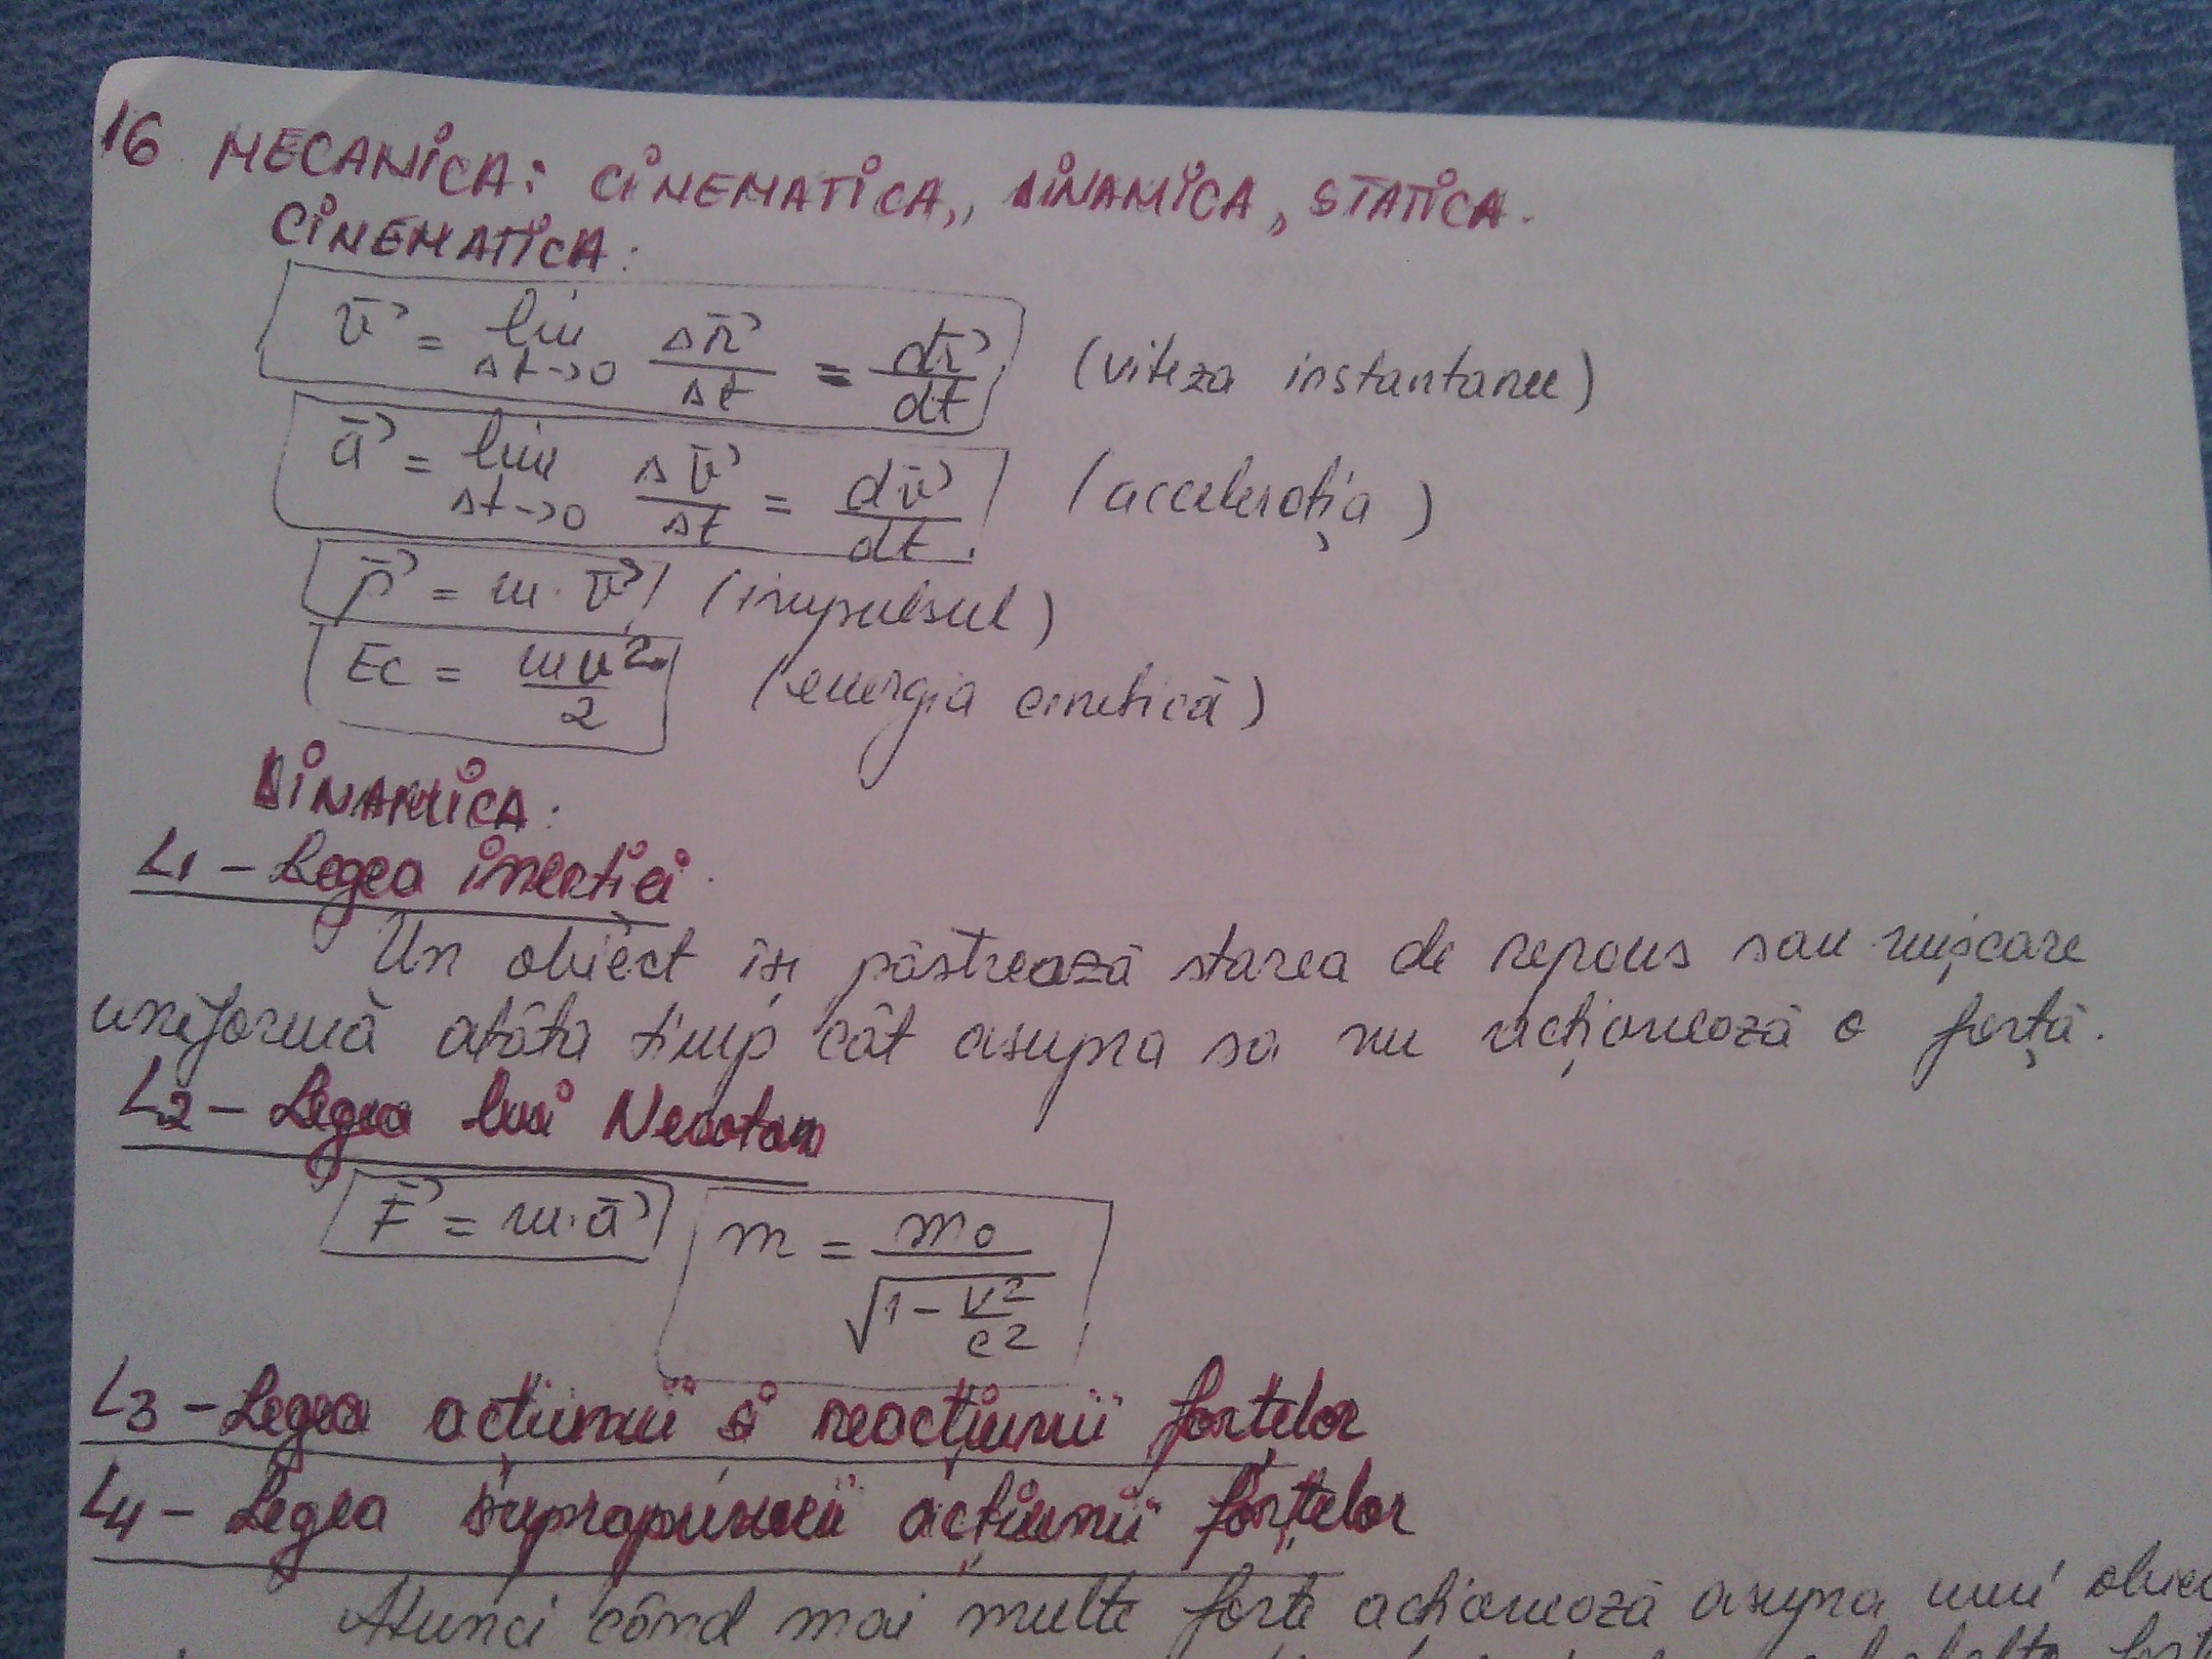 16 MECANICA: CINEMATICA,, DINAMICA, STATICA.
CINEMATICA:
v⃗ = lim Δt→0 Δr⃗/Δt = dr⃗/dt (viteza instantanee)
a⃗ = lim Δt→0 Δv⃗/Δt = dv⃗/dt (accelerația)
p⃗ = m·v⃗ (impulsul)
Ec = mv²/2 (energia cinetică)
DINAMICA:
L1 - Legea inertiei
Un obiect își păstrează starea de repaus sau mișcare
uniformă atâta timp cât asupra sa nu acționează o forță.
L2 - Legea lui Newton
F⃗ = m·a⃗ m = m0/√(1 - v²/c²)
L3 - Legea acțiunii si reacțiunii forțelor
L4 - Legea suprapunerii acțiunii forțelor
Atunci când mai multe forțe acționează asupra unui